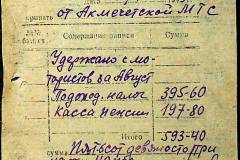 от Акмечетской МТС
Содержание записи Сумма
Удержано с мо-
тористов за Август
Подоход. налог 395-60
Касса пенсии 197-80
Итого 593-40
Пятьсот девяносто три